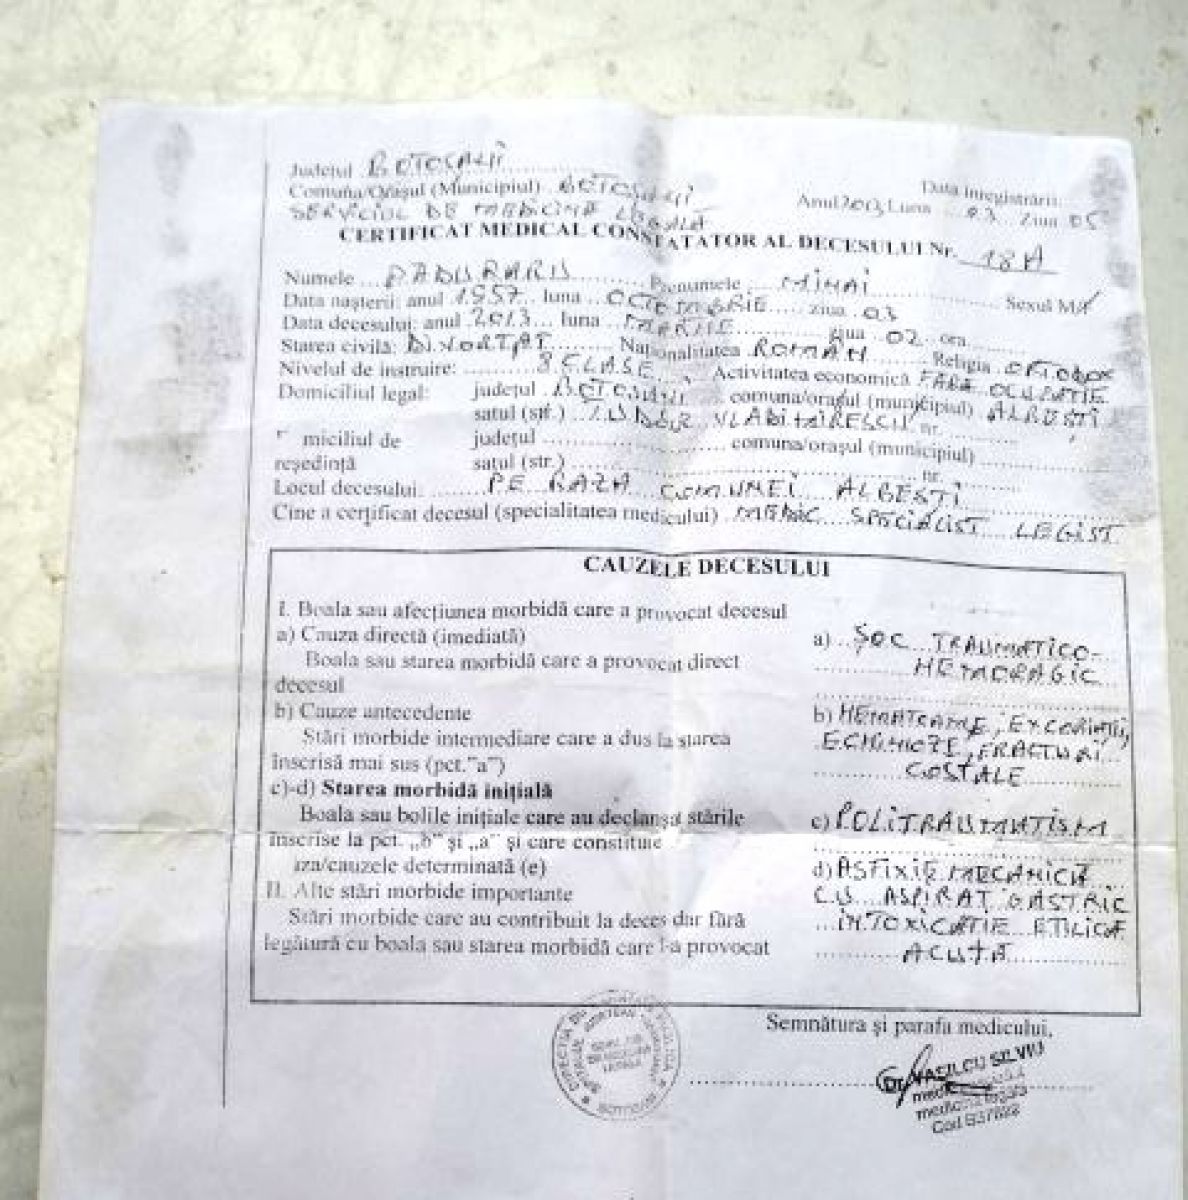 Județul BOTOȘANI
Comuna/Orașul (Municipiul) BOTOȘANI
Data înregistrării:
Anul 2013 Luna 03 Ziua 05
SERVICIUL DE MEDICINĂ LEGALĂ
CERTIFICAT MEDICAL CONSTATATOR AL DECESULUI Nr. 18A
Numele PADURARIU Prenumele MIHAI Sexul M
Data nașterii: anul 1957 luna OCTOMBRIE ziua 03
Data decesului: anul 2013 luna MARTIE ziua 02 ora
Starea civilă: DIVORTAT Naționalitatea ROMÂN Religia ORTODOX
Nivelul de instruire: 8 CLASE Activitatea economică FĂRĂ OCUPATIE
Domiciliul legal: județul BOTOȘANI comuna/orașul (municipiul) ALBEȘTI
satul (str.) TUDOR VLADIMIRESCU nr.
miciliul de județul comuna/orașul (municipiul)
reședință satul (str.) nr.
Locul decesului: PE RAZA COMUNEI ALBEȘTI
Cine a certificat decesul (specialitatea medicului) MEDIC SPECIALIST LEGIST
CAUZELE DECESULUI
I. Boala sau afecțiunea morbidă care a provocat decesul
a) Cauza directă (imediată) a) ȘOC TRAUMATICO-
Boala sau starea morbidă care a provocat direct HEMORAGIC
decesul
b) Cauze antecedente b) HEMATOAME, EXCORIATII,
Stări morbide intermediare care a dus la starea ECHIMOZE, FRACTURI
înscrisă mai sus (pct."a") COSTALE
c)-d) Starea morbidă inițială
Boala sau bolile inițiale care au declanșat stările c) POLITRAUMATISM
înscrise la pct. „b" și „a" și care constituie
iza/cauzele determinată (e) d) ASFIXIE MECANICĂ
II. Alte stări morbide importante CU ASPIRAT GASTRIC
Stări morbide care au contribuit la deces dar fără INTOXICATIE ETILICĂ
legătură cu boala sau starea morbidă care l-a provocat ACUTĂ
Semnătura și parafa medicului,
Dr. VASILCU SILVIU
medicină legală
Cod